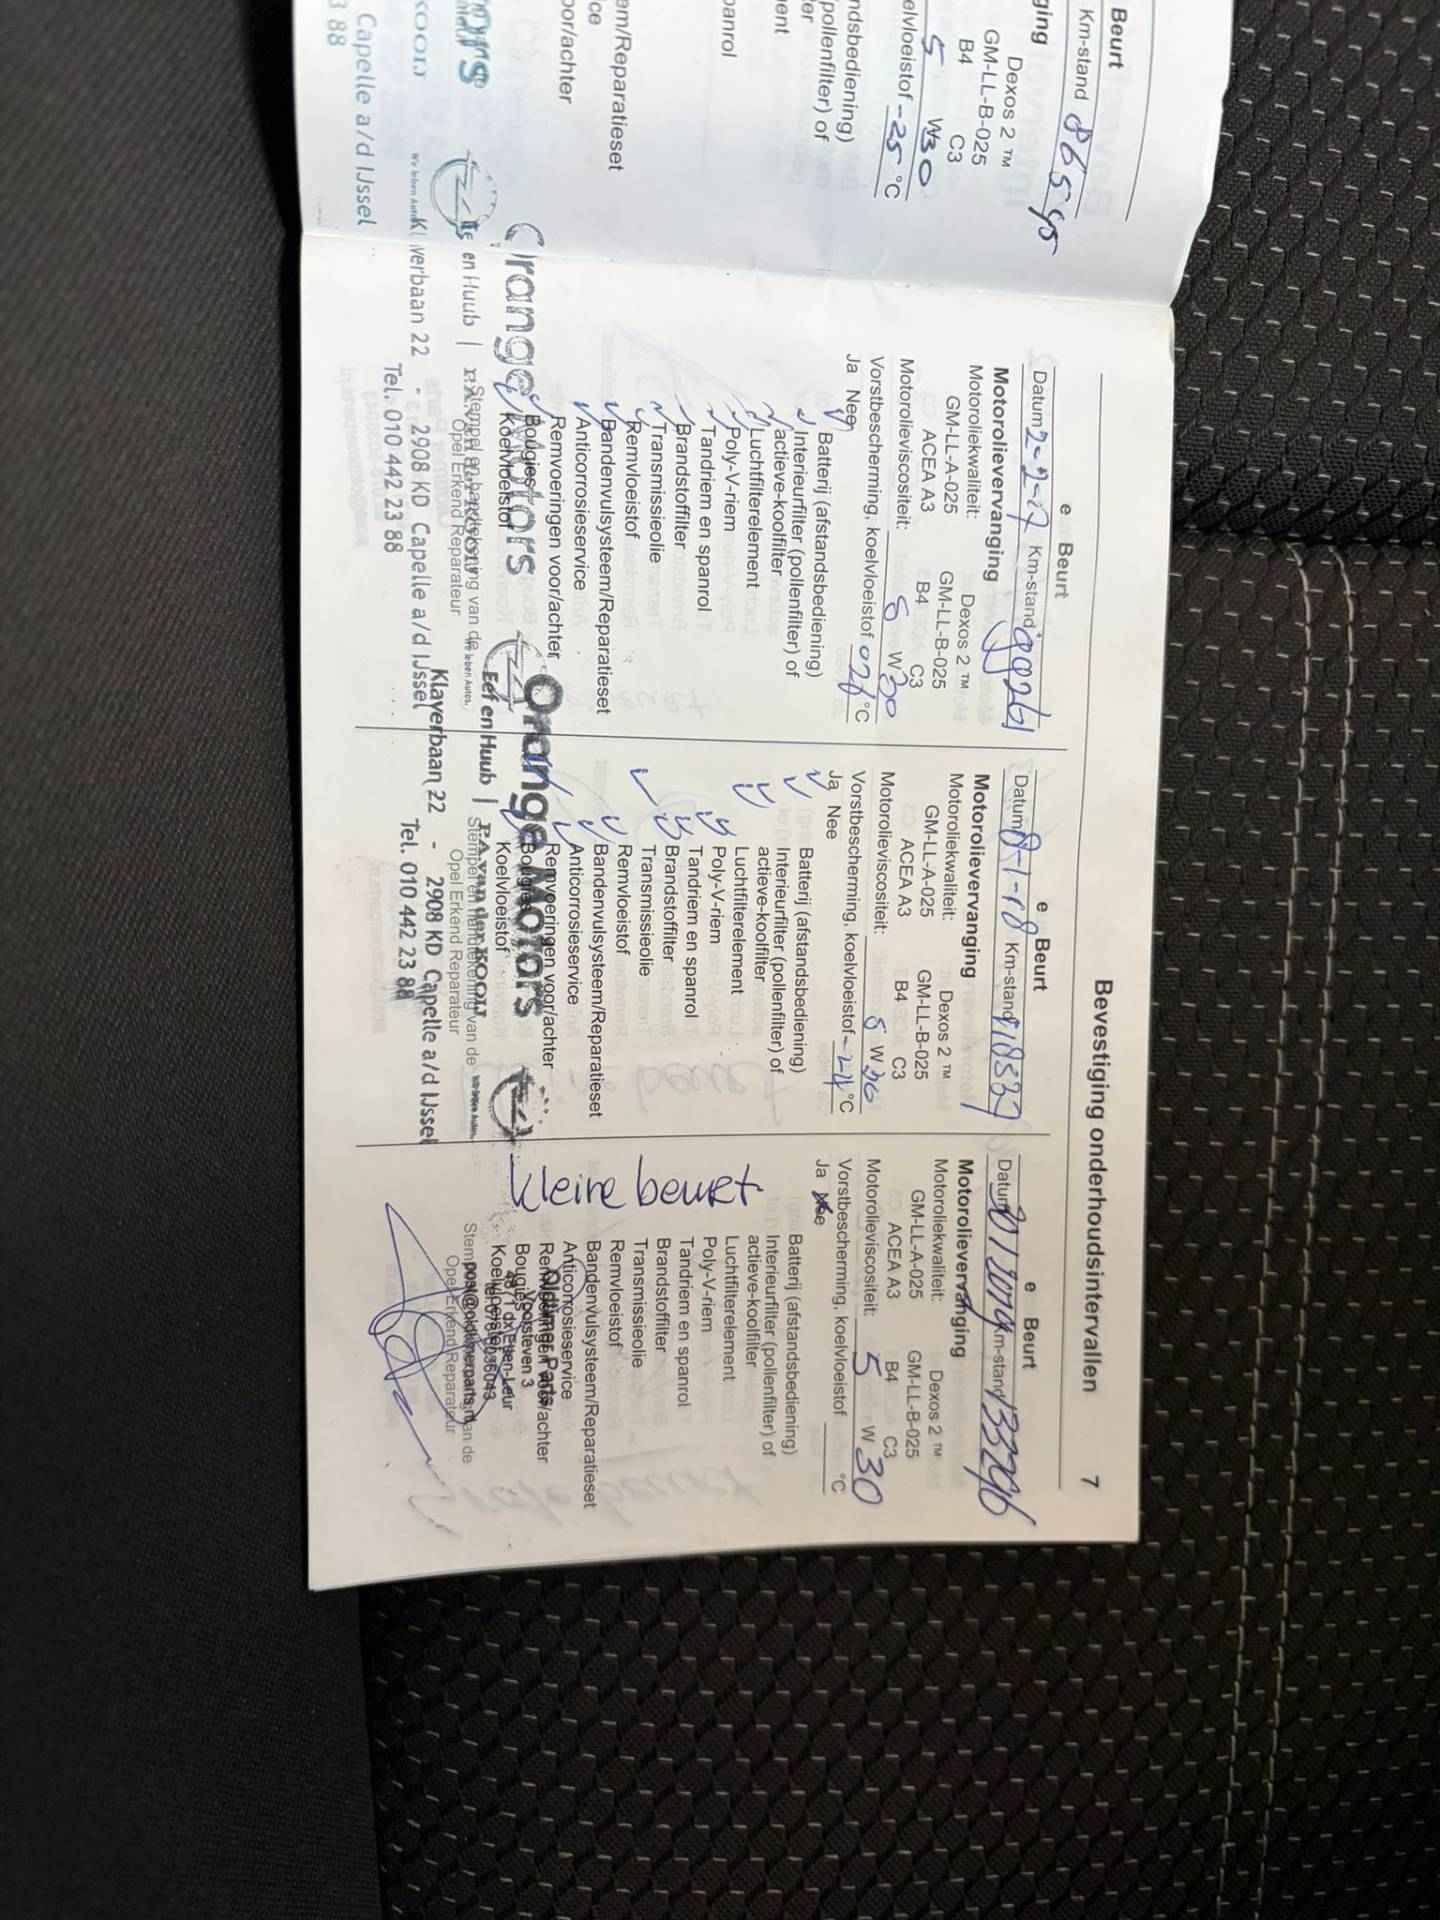 Beurt
Km-stand 86545
ging
Dexos 2 ™
GM-LL-B-025
B4 C3
5 W30
elvloeistof -25 °C
ndsbediening)
(pollenfilter) of
panrol
em/Reparatieset
oor/achter
Capelle a/d IJssel
3 88
Bevestiging onderhoudsintervallen 7
e Beurt
Datum 2-2-17 Km-stand 99261
Motorolievervanging
Motoroliekwaliteit: Dexos 2 ™
GM-LL-A-025 GM-LL-B-025
ACEA A3 B4 C3
Motorolieviscositeit: 5 W30
Vorstbescherming, koelvloeistof °C
Ja Nee
Batterij (afstandsbediening)
Interieurfilter (pollenfilter) of
actieve-koolfilter
Luchtfilterelement
Poly-V-riem
Tandriem en spanrol
Brandstoffilter
Transmissieolie
Remvloeistof
Bandenvulsysteem/Reparatieset
Anticorrosieservice
Remvoeringen voor/achter
Bougies
Koelvloeistof
Orange Motors
Opel Erkend Reparateur
Klaverbaan 22 - 2908 KD Capelle a/d IJssel
Tel. 010 442 23 88
e Beurt
Datum 8-1-18 Km-stand 118537
Motorolievervanging
Motoroliekwaliteit: Dexos 2 ™
GM-LL-A-025 GM-LL-B-025
ACEA A3 B4 C3
Motorolieviscositeit: 5 W30
Vorstbescherming, koelvloeistof -24 °C
Ja Nee
Batterij (afstandsbediening)
Interieurfilter (pollenfilter) of
actieve-koolfilter
Luchtfilterelement
Poly-V-riem
Tandriem en spanrol
Brandstoffilter
Transmissieolie
Remvloeistof
Bandenvulsysteem/Reparatieset
Anticorrosieservice
Remvoeringen voor/achter
Bougies
Koelvloeistof
Orange Motors
Eef en Huub | F.A. van der KOOIJ
Stempel en handtekening van de
Opel Erkend Reparateur
Klaverbaan 22 - 2908 KD Capelle a/d IJssel
Tel. 010 442 23 88
e Beurt
Datum Km-stand 133296
Motorolievervanging
Motoroliekwaliteit: Dexos 2 ™
GM-LL-A-025 GM-LL-B-025
ACEA A3 B4 C3
Motorolieviscositeit: 5 W 30
Vorstbescherming, koelvloeistof °C
Ja Nee
kleine beurt
Batterij (afstandsbediening)
Interieurfilter (pollenfilter) of
actieve-koolfilter
Luchtfilterelement
Poly-V-riem
Tandriem en spanrol
Brandstoffilter
Transmissieolie
Remvloeistof
Bandenvulsysteem/Reparatieset
Anticorrosieservice
Remvoeringen voor/achter
Bougies
Koelvloeistof
Oldtimer Parts
Voorsteven 3
Etten-Leur
post@oldtimerparts.nl
Opel Erkend Reparateur